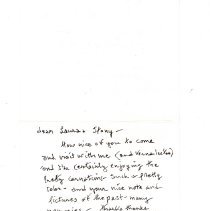 Dear Laura & Stony –
How nice of you to come
and visit with me (and
and I'm certainly enjoying the
lovely carnations. Such a pretty
color – and your nice note and
pictures of the past – many
memories – thanks thanks